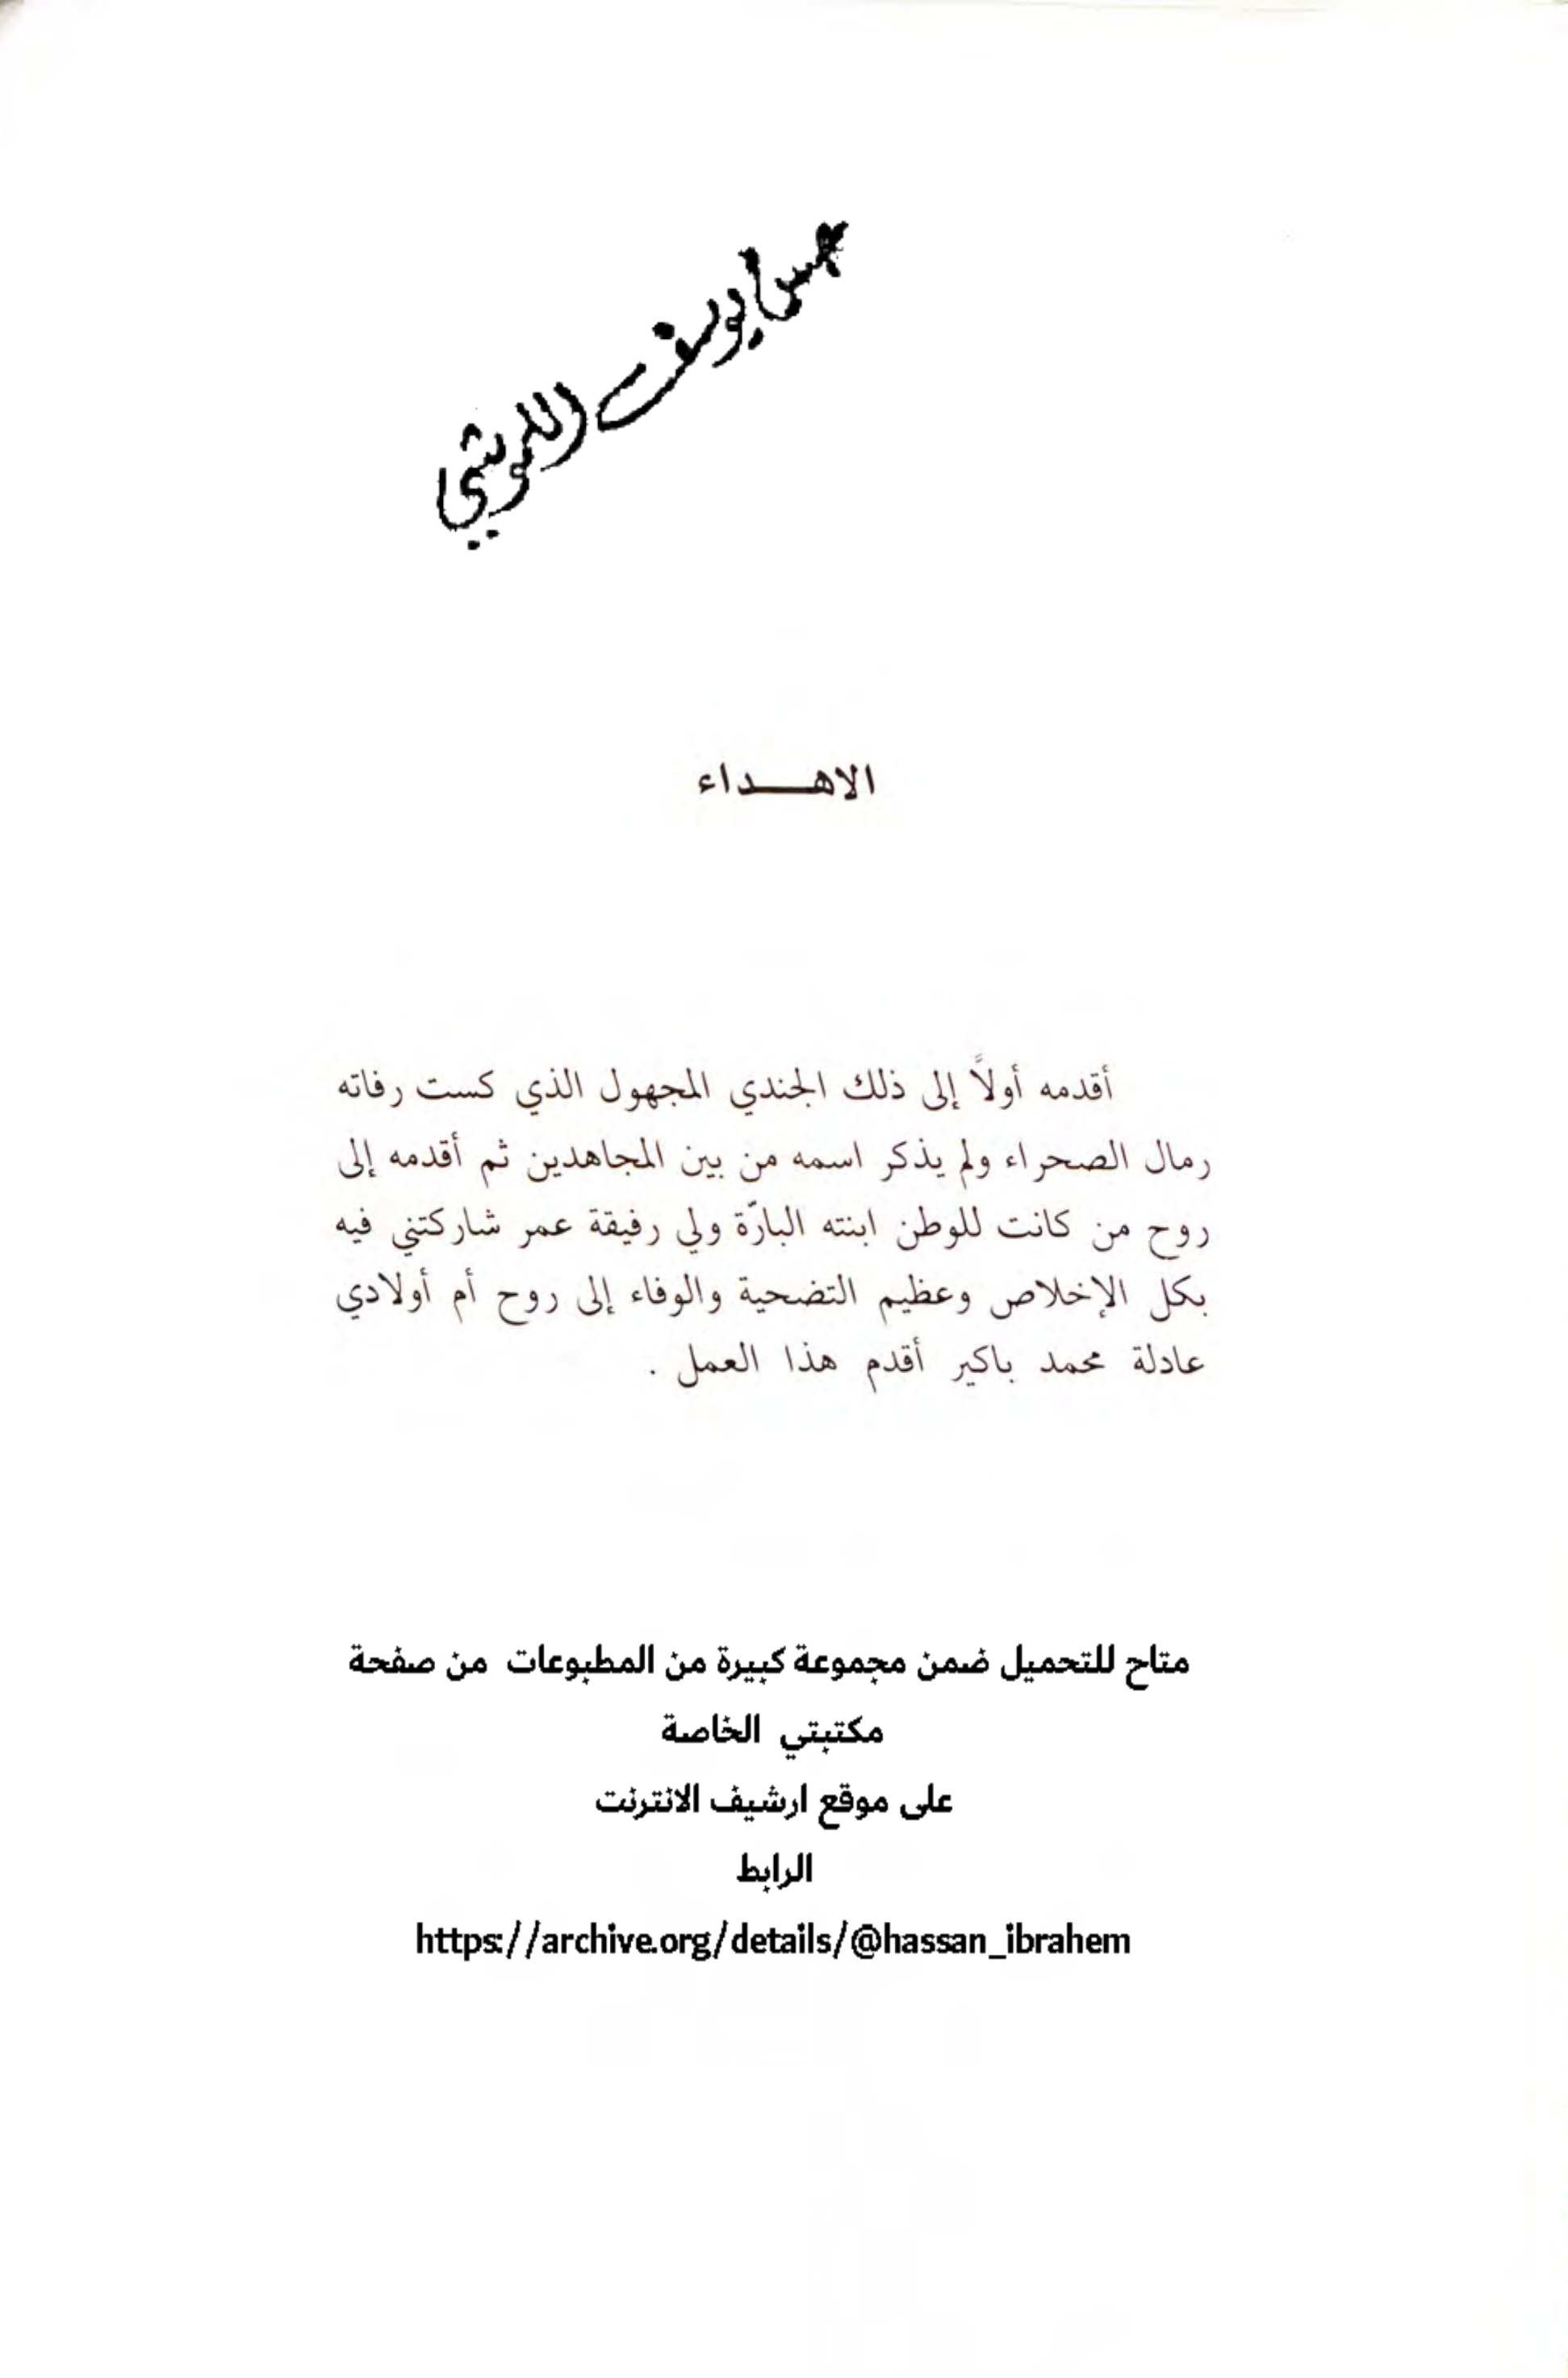 يوسف
الاهـــداء
أقدمه أولاً إلى ذلك الجندي المجهول الذي كست رفاته
رمال الصحراء ولم يذكر اسمه من بين المجاهدين ثم أقدمه إلى
روح من كانت للوطن ابنته البارّة ولي رفيقة عمر شاركتني فيه
بكل الإخلاص وعظيم التضحية والوفاء إلى روح أم أولادي
عادلة محمد باكير أقدم هذا العمل .
متاح للتحميل ضمن مجموعة كبيرة من المطبوعات من صفحة
مكتبتي الخاصة
على موقع ارشيف الانترنت
الرابط
https://archive.org/details/@hassan_ibrahem